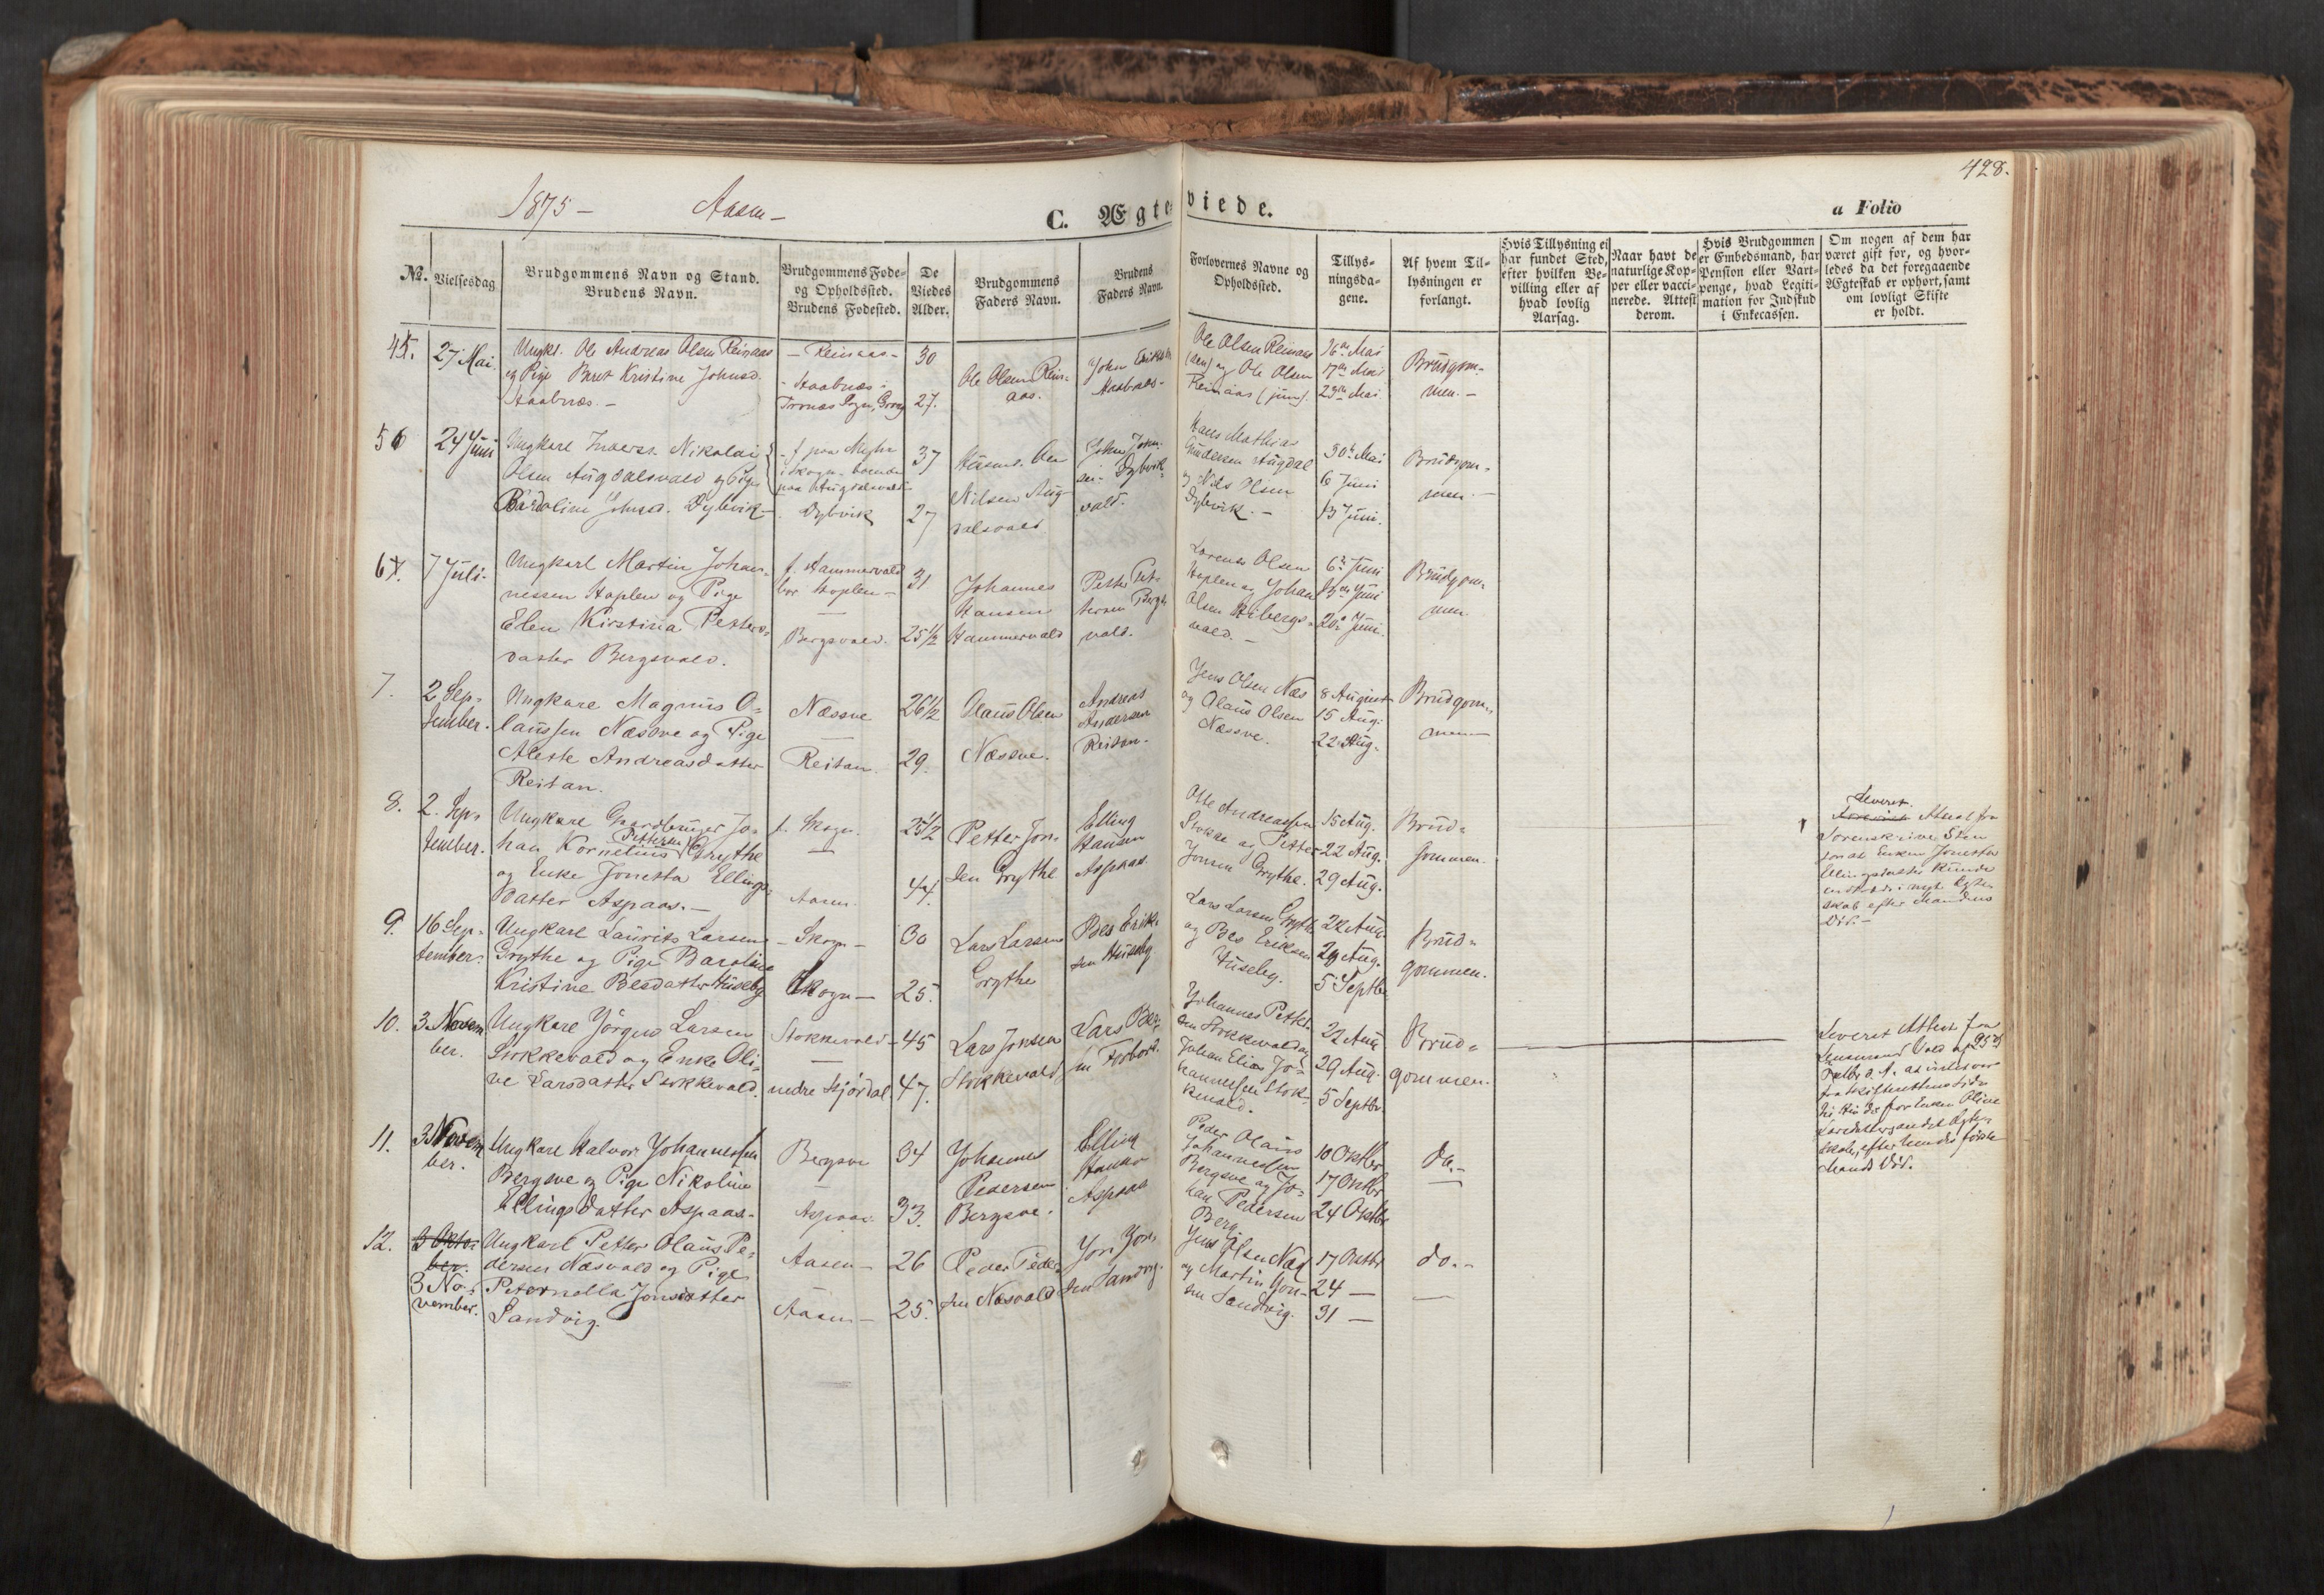 1875 - Aasen -
C. Ægteviede.
a Folio
428.
No.
Vielsesdag
Brudgommens Navn og Stand.
Brudens Navn.
Brudgommens Føde-
og Opholdssted.
Brudens Fødested.
De
Viedes
Alder.
Brudgommens
Faders Navn.
Brudens
Faders Navn.
Forlovernes Navne og
Opholdssted.
Tillys-
ningsda-
gene.
Af hvem Til-
lysningen er
forlangt.
Hvis Tillysning ei
har fundet Sted,
efter hvilken Be-
villing eller af
hvad lovlig
Aarsag.
Naar havt de
naturlige Kop-
per eller vacci-
nerede. Attest
derom.
Hvis Brudgommen
er Embedsmand, har
Pension eller Vart-
penge, hvad Legiti-
mation for Indskud
i Enkecassen.
Om nogen af dem har
været gift før, og hvor-
ledes da det foregaaende
Ægteskab er ophørt, samt
om lovligt Skifte
er holdt.
45.
27 Mai.
Ungkl. Ole Andreas Olsen Reinaas
og Pige Beret Kristine Johnsd.
- Reinaas -
30
27.
Ole Olsen Rein-
aas.
John Eriks
Ole Olsen Reinaas
(sen) og Ole Olsen
Reinaas (jun).
16de Mai
17de Mai
23de Mai.
Brudgom-
men. -
56
24 Juni
Ungkarl Nikolai
Olsen Augdalsvald og Pige
Bardoline Johnsd. Dybvik -
i Skogn
Dybvik
37
27
Nilsen Aug-
dalsvald
Dybvik-
vald.
Hans Mathias
Gundersen Augdal
og Nils Olsen
Dybvik. -
30te Mai
6 Juni
13 Juni.
Brudgom-
men. -
67.
7 Juli.
Ungkarl Martin Johan-
nessen Hoplen og Pige
Elen Kirstina Petters-
datter Bergsvald.
f. Hammervald
bor Hoplen -
Bergsvald.
31
25 1/2
Johannes
Hansen
Hammervald
Petter Pet-
tersen Bergs
vald.
Lorents Olsen
Hoplen og Johan
Olsen
vald. -
6te Juni
13de Juni
20de Juni.
Brudgom-
men
7.
2 Sep-
tember.
Ungkarl Magnus O-
laussen Næssve og Pige
Aleste Andreasdatter
Reitan.
Næssve
Reitan.
26 1/2
29.
Olaus Olsen
Næssve.
Andreas
Andersen
Reitan.
Jens Olsen Næs
og Olaus Olsen
Næssve.
8 August
15 Aug.
22 Aug.
Brudgom-
men
8.
2. Sep-
tember.
Ungkarl Gaardbruger Jo-
han Kornelius Pettersen Grythe
og Enke Jonetta Ellings-
datter Aspaas. -
f. Skogn.
Aasen.
25 1/2
44.
Petter Jon-
sen Grythe
Elling
Hansen
Aspaas
Otte Andreassen
og Petter
Jonsen Grythe.
15 Aug.
22 Aug.
29 Aug.
Brud-
gommen.
Leveret
Attest fra
Sorenskriver Sten
for at Enken Jonetta
Ellingsdatter kunde
indtræde i nyt Ægte-
skab efter Mandens
Død. -
9.
16 Sep-
tember.
Ungkarl Laurits Larsen
Grythe og Pige Baroline
Kristine Besdatter Huseby
- Skogn -
Skogn -
30
25.
Lars Larsen
Grythe
Bes Erik-
sen Huseby
Lars Larsen Grythe
og Bes Eriksen
Huseby.
22 Aug.
29 Aug.
5 Septbr.
Brud-
gommen.
10.
3 Novem
ber.
Ungkarl Jørgen Larsen
Stokkevald og Enke Oli-
ve Larsdatter Stokkevald.
Stokkevald
nedre Stjørdal
45
47.
Lars Jonsen
Stokkevald
Lars
Johannes Petter-
sen Stokkevald og
Johan Elias Jo-
hannessen Stok-
kevald.
22 Aug.
29 Aug.
5 Septbr.
Brud-
gommen.
Leveret Attest fra
Lensmand Vold
for Enken Olive
Larsdatter
skab, efter hendes første
Mands Død.
11.
3 Novem
ber.
Ungkarl Halvor Johannessen
Bergsve og Pige Nikoline
Ellingsdatter Aspaas.
Bergsve
Aspaas.
34
33.
Johannes
Pedersen
Bergsve.
Elling
Hansen
Aspaas
Peder Olaus
Johannessen
Bergsve og Jo-
han Pedersen
Berg
10 Oktbr
17 Oktbr
24 Oktbr
do. -
12.
3 Okto-
ber.
3 No-
vember.
Ungkarl Petter Olaus Pe-
dersen Næsvald og Pige
Petornella Jonsdatter
Sandvig.
Aasen -
Aasen -
26
25.
Peder Peder-
sen Næsvald
Jon Jon-
sen Sandvig.
Jens Olsen Næs
og Martin Jon-
sen Sandvig.
17 Oktbr
24 -
31 -
do. -